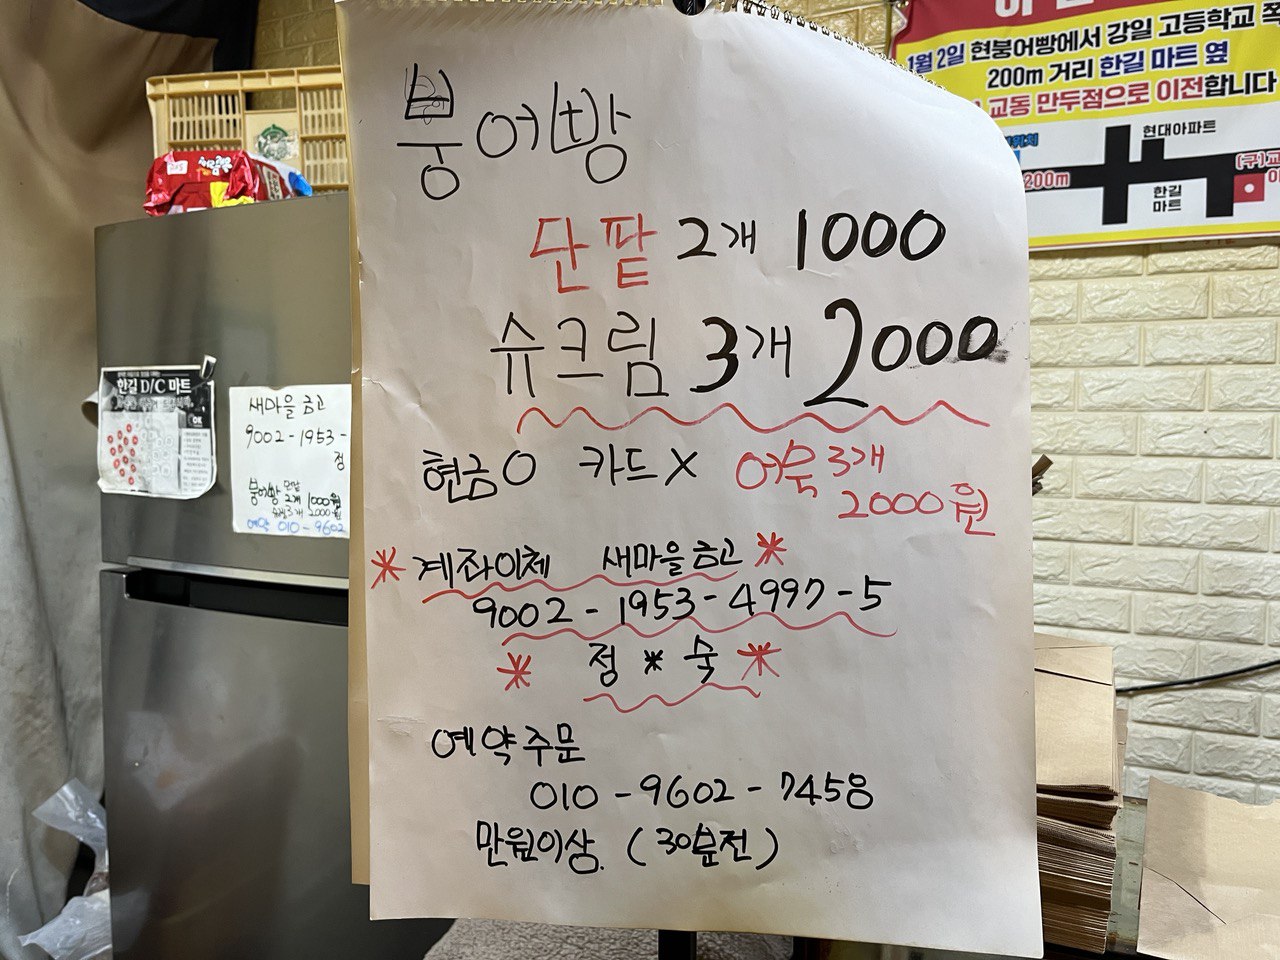 붕어빵
단팥 2개 1000
슈크림 3개 2000
현금O 카드X 어묵 3개
2000원
* 계좌이체 새마을금고 *
9002-1953-4997-5
* 정*숙 *
예약주문
010-9602-7458
만원이상. (30분전)
1월 2일 현붕어빵에서 강일 고등학교 쪽
200m 거리 한길 마트 옆
교동 만두점으로 이전합니다
현대아파트
위치
200m
한길
마트
(구)교
한길 D/C 마트
새마을금고
9002-1953-
정
붕어빵 단팥 2개 1000원
슈크림 3개 2000원
예약 010-9602